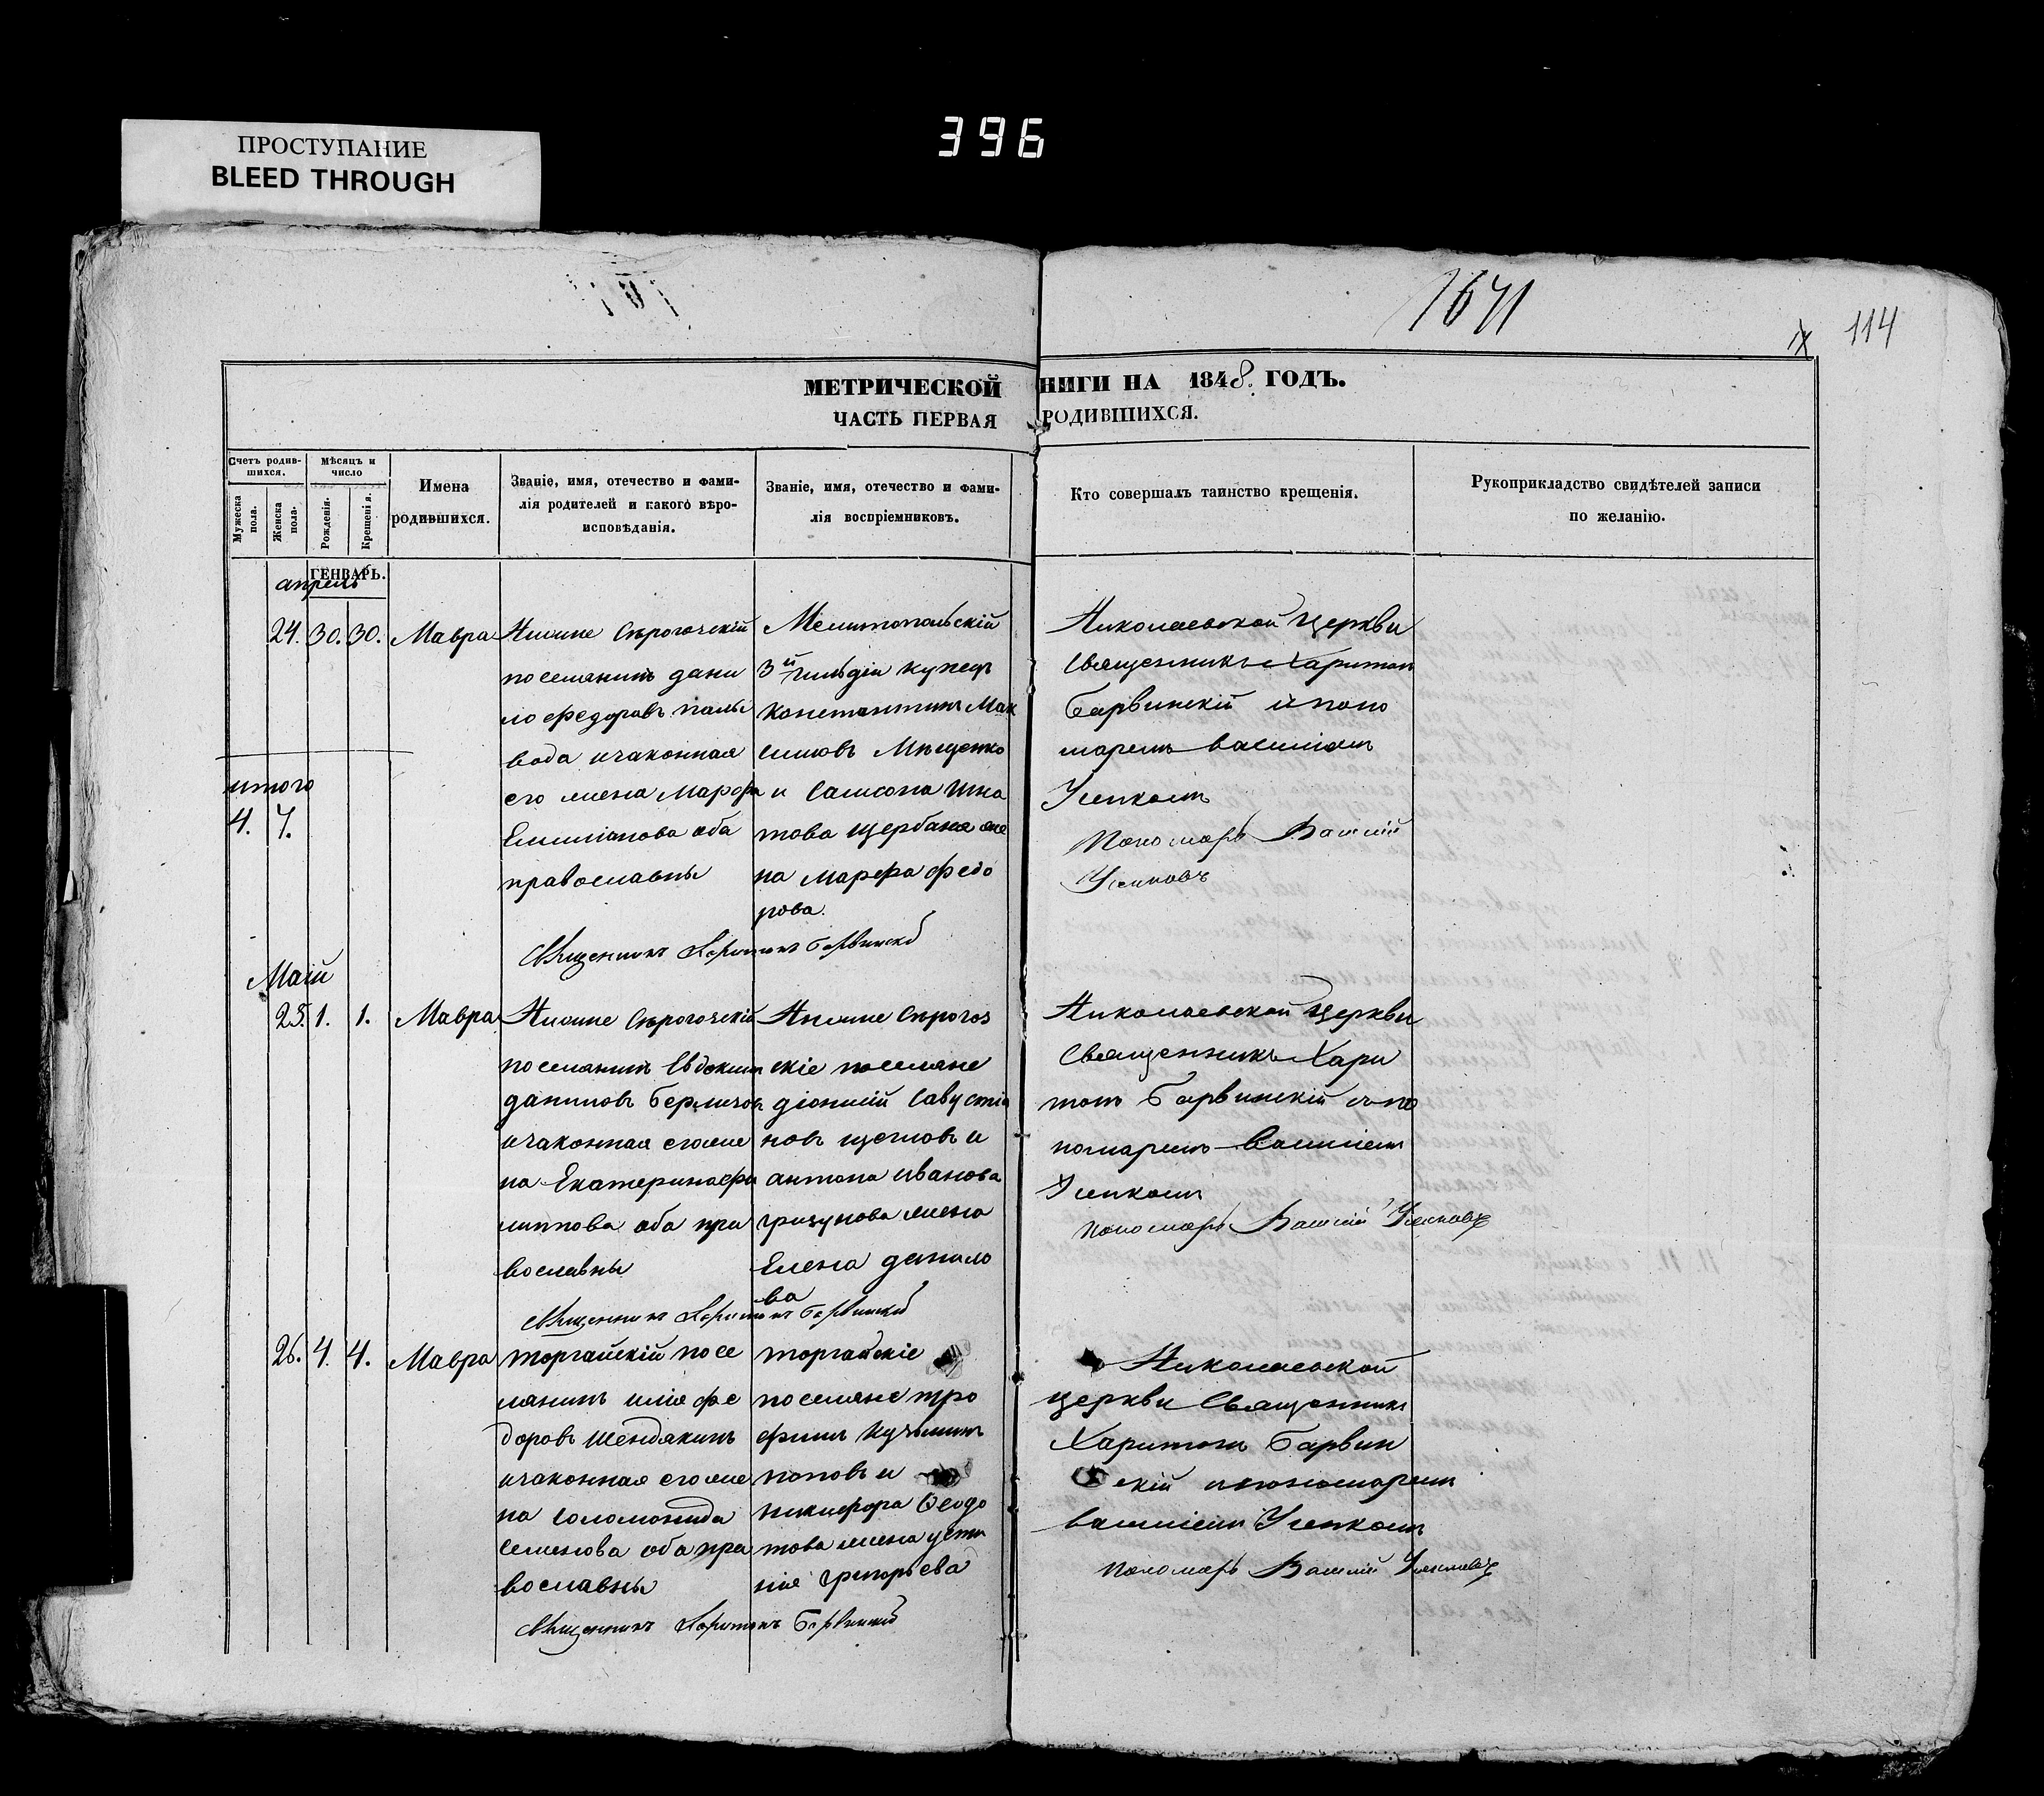 ПРОСТУПАНИЕ
BLEED THROUGH
396
1671
114
МЕТРИЧЕСКОЙ КНИГИ НА 1848. ГОДЪ.
ЧАСТЬ ПЕРВАЯ РОДИВШИХСЯ.
Счетъ родив-
шихся.
Мужеска
пола.
Женска
пола.
Мѣсяцъ и
число
Рожденія.
Крещенія.
Имена
родившихся.
Званіе, имя, отечество и фами-
лія родителей и какого вѣро-
исповѣданія.
Званіе, имя, отечество и фами-
лія воспріемниковъ.
Кто совершалъ таинство крещенія.
Рукоприкладство свидѣтелей записи
по желанію.
ГЕНВАРЬ.
апрель
24. 30. 30. Мавра
Нижне Сѣрогозскій
поселянинъ дани
ло федоровъ пали
вода изаконная
его жена Марфа
Емиліанова оба
православны
Мелитопольскій
3й гильдіи купецъ
Константинъ Мак
симовъ Мищенко
и Самсона Игна
това Щербана же
на Марфа федо
рова.
Николаевской Церкви
Священникъ Харитонъ
Барвинскій ипоно
маремъ василіемъ
Усенкомъ
Пономарь Василій
Усенковъ
итого
4. 7.
Священникъ Харитонъ Барвинскій
Маій
25. 1. 1. Мавра
Нижне Сѣрогозскій
поселянинъ Евдокимъ
даниловъ
изаконная его же
на Екатерина фи
липпова оба пра
вославны
Нижне Сѣрогоз
скіе поселяне
діонисій Савустіа
новъ и
антона иванова
гризунова жена
Елена данило
ва
Николаевской Церкви
Священникъ Хари
тонъ Барвинскій ипо
номаремъ Василіемъ
Усенкомъ
пономарь Василій Усенковъ
Священникъ Харитонъ Барвинскій
26. 4. 4. Мавра
торгайскій посе
лянинъ илія фе
доровъ Шендякинъ
изаконная его же
на соломонида
семенова оба пра
вославны
торгайскіе
поселяне тро
фимъ Кузьминъ
поповъ и
никифора Ѳеодо
това жена усти
нія григорьева
Николаевской
церкви Священникъ
Харитонъ Барвин
скій ипономаремъ
василіемъ Усенкомъ
пономарь Василій Усенковъ
Священникъ Харитонъ Барвинскій